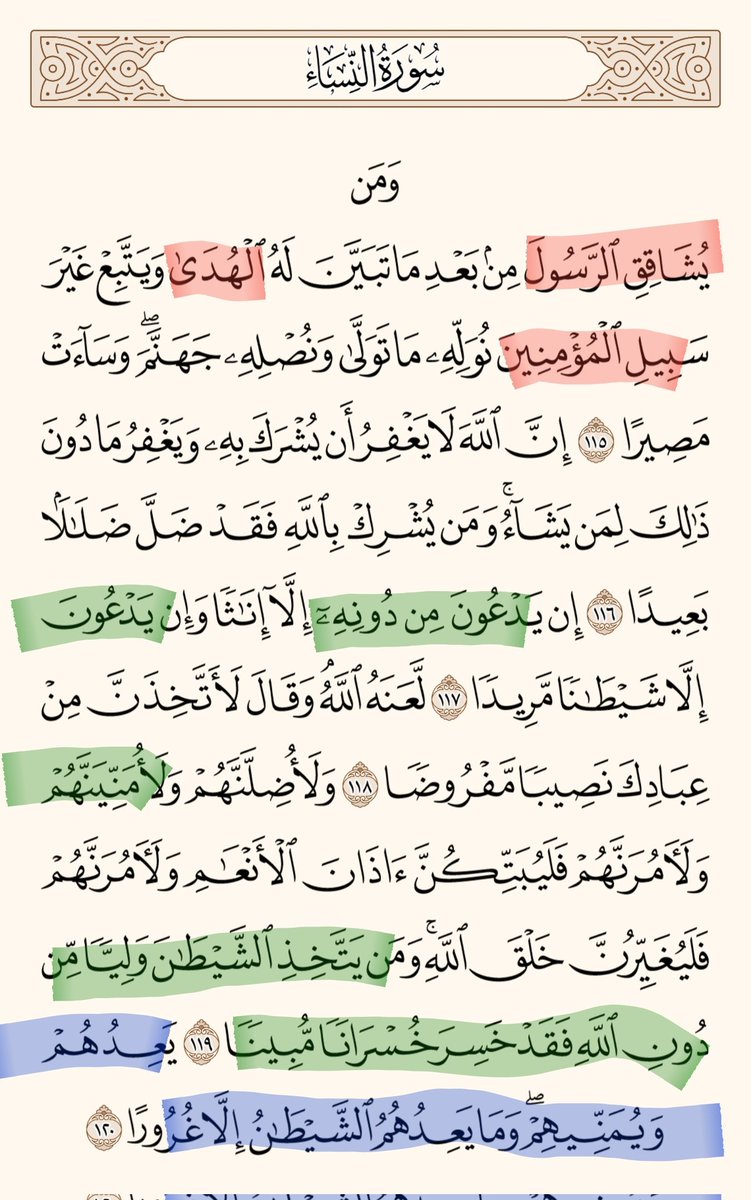 سُورَةُ النِّسَاءِ
وَمَن
يُشَاقِقِ ٱلرَّسُولَ مِنۢ بَعْدِ مَا تَبَيَّنَ لَهُ ٱلْهُدَىٰ وَيَتَّبِعْ غَيْرَ
سَبِيلِ ٱلْمُؤْمِنِينَ نُوَلِّهِۦ مَا تَوَلَّىٰ وَنُصْلِهِۦ جَهَنَّمَۖ وَسَآءَتْ
مَصِيرًا ١١٥ إِنَّ ٱللَّهَ لَا يَغْفِرُ أَن يُشْرَكَ بِهِۦ وَيَغْفِرُ مَا دُونَ
ذَٰلِكَ لِمَن يَشَآءُۚ وَمَن يُشْرِكْ بِٱللَّهِ فَقَدْ ضَلَّ ضَلَٰلًۢا
بَعِيدًا ١١٦ إِن يَدْعُونَ مِن دُونِهِۦٓ إِلَّآ إِنَٰثًا وَإِن يَدْعُونَ
إِلَّا شَيْطَٰنًا مَّرِيدًا ١١٧ لَّعَنَهُ ٱللَّهُۘ وَقَالَ لَأَتَّخِذَنَّ مِنْ
عِبَادِكَ نَصِيبًا مَّفْرُوضًا ١١٨ وَلَأُضِلَّنَّهُمْ وَلَأُمَنِّيَنَّهُمْ
وَلَءَامُرَنَّهُمْ فَلَيُبَتِّكُنَّ ءَاذَانَ ٱلْأَنْعَٰمِ وَلَءَامُرَنَّهُمْ
فَلَيُغَيِّرُنَّ خَلْقَ ٱللَّهِۚ وَمَن يَتَّخِذِ ٱلشَّيْطَٰنَ وَلِيًّا مِّن
دُونِ ٱللَّهِ فَقَدْ خَسِرَ خُسْرَانًا مُّبِينًا ١١٩ يَعِدُهُمْ
وَيُمَنِّيهِمْۖ وَمَا يَعِدُهُمُ ٱلشَّيْطَٰنُ إِلَّا غُرُورًا ١٢٠